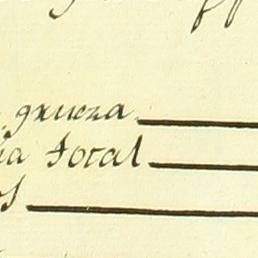 grueza
ia total
os